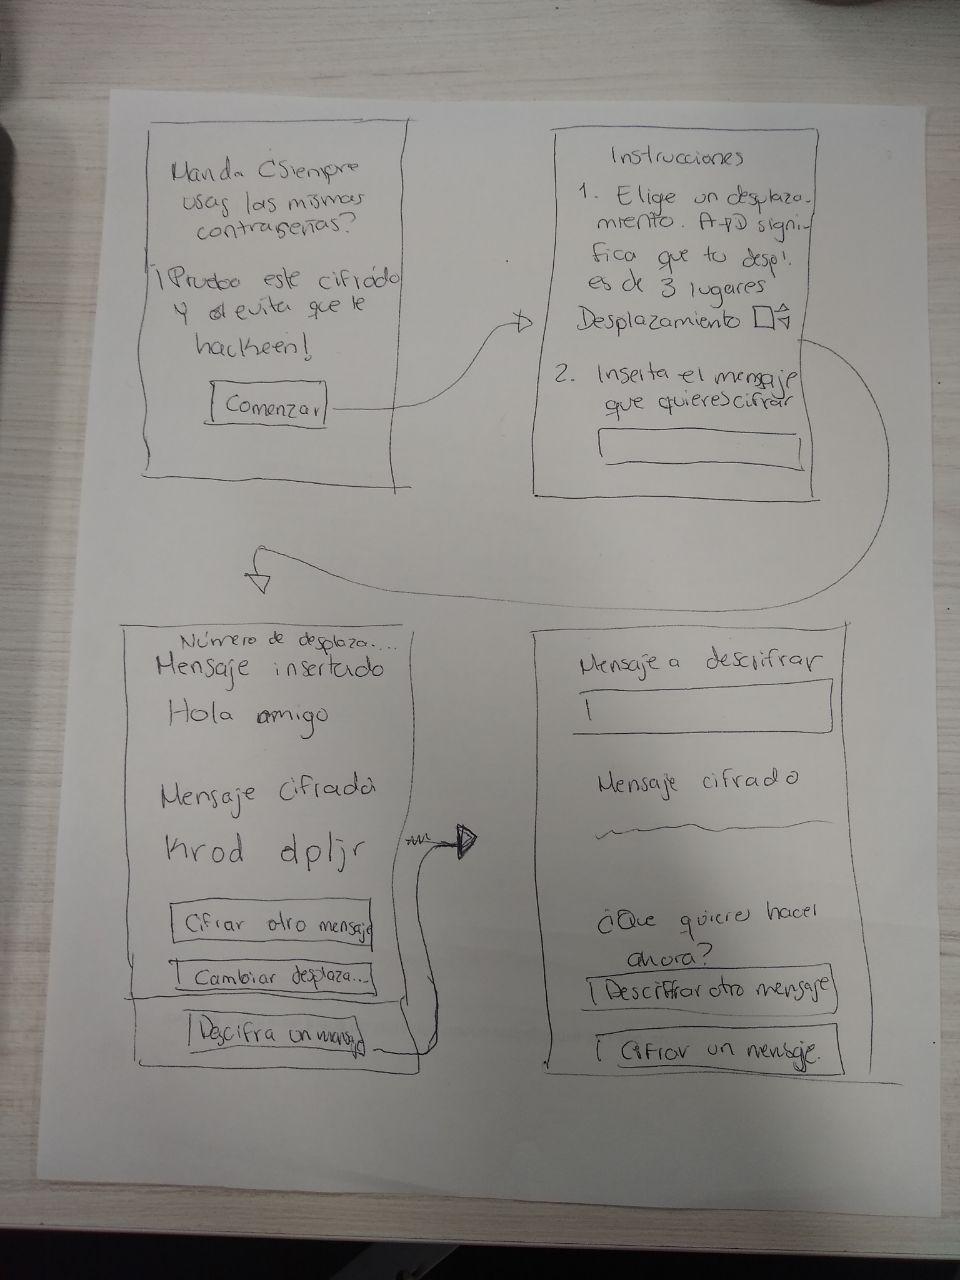 Manda ¿Siempre
usas las mismas
contraseñas?
¡Prueba este cifrado
y evita que te
hackeen!
Comenzar
Instrucciones
1. Elige un desplaza-
miento. A→D signi-
fica que tu despl.
es de 3 lugares
Desplazamiento
2. Inserta el mensaje
que quieres cifrar
Número de desplaza....
Mensaje insertado
Hola amigo
Mensaje cifrado
Krod dpljr
Cifrar otro mensaje
Cambiar desplaza...
Descifra un mensaje
Mensaje a descrifrar
Mensaje cifrado
¿Que quieres hacer
ahora?
Desciffrar otro mensaje
Cifrar un mensaje.